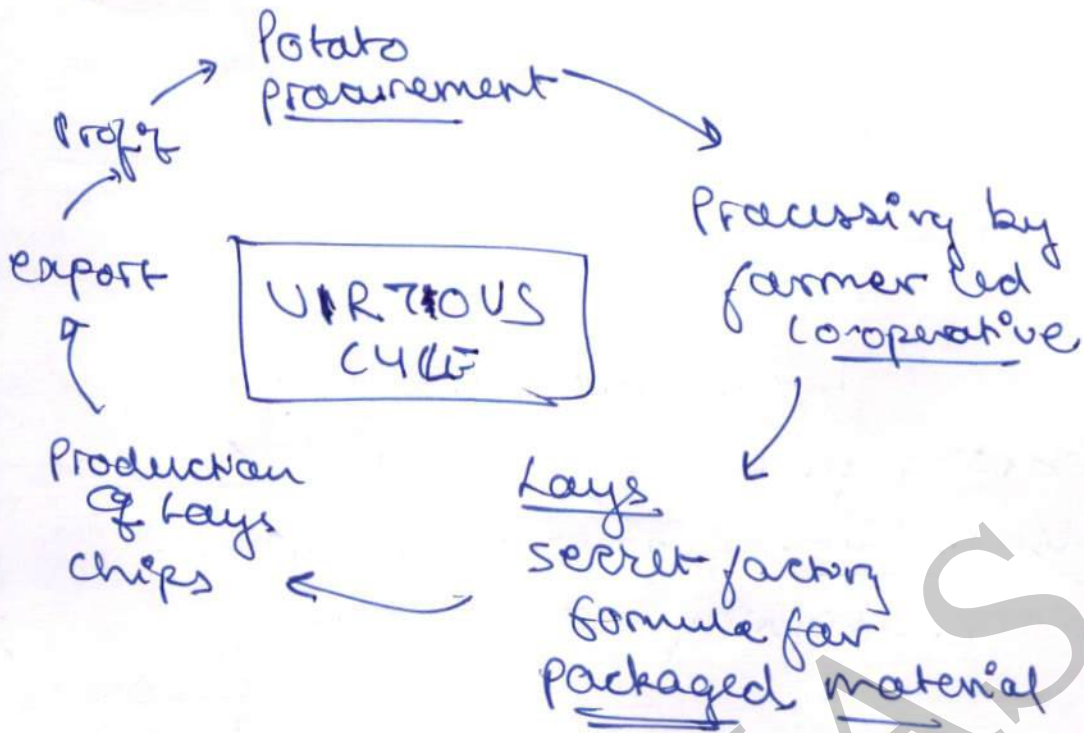 Potato
procurement
Processing by
farmer led
co-operative
Lays
secret factory
formula for
packaged material
Production
of Lays
chips
export
Profit
VIRTIOUS
CYCLE
IAS